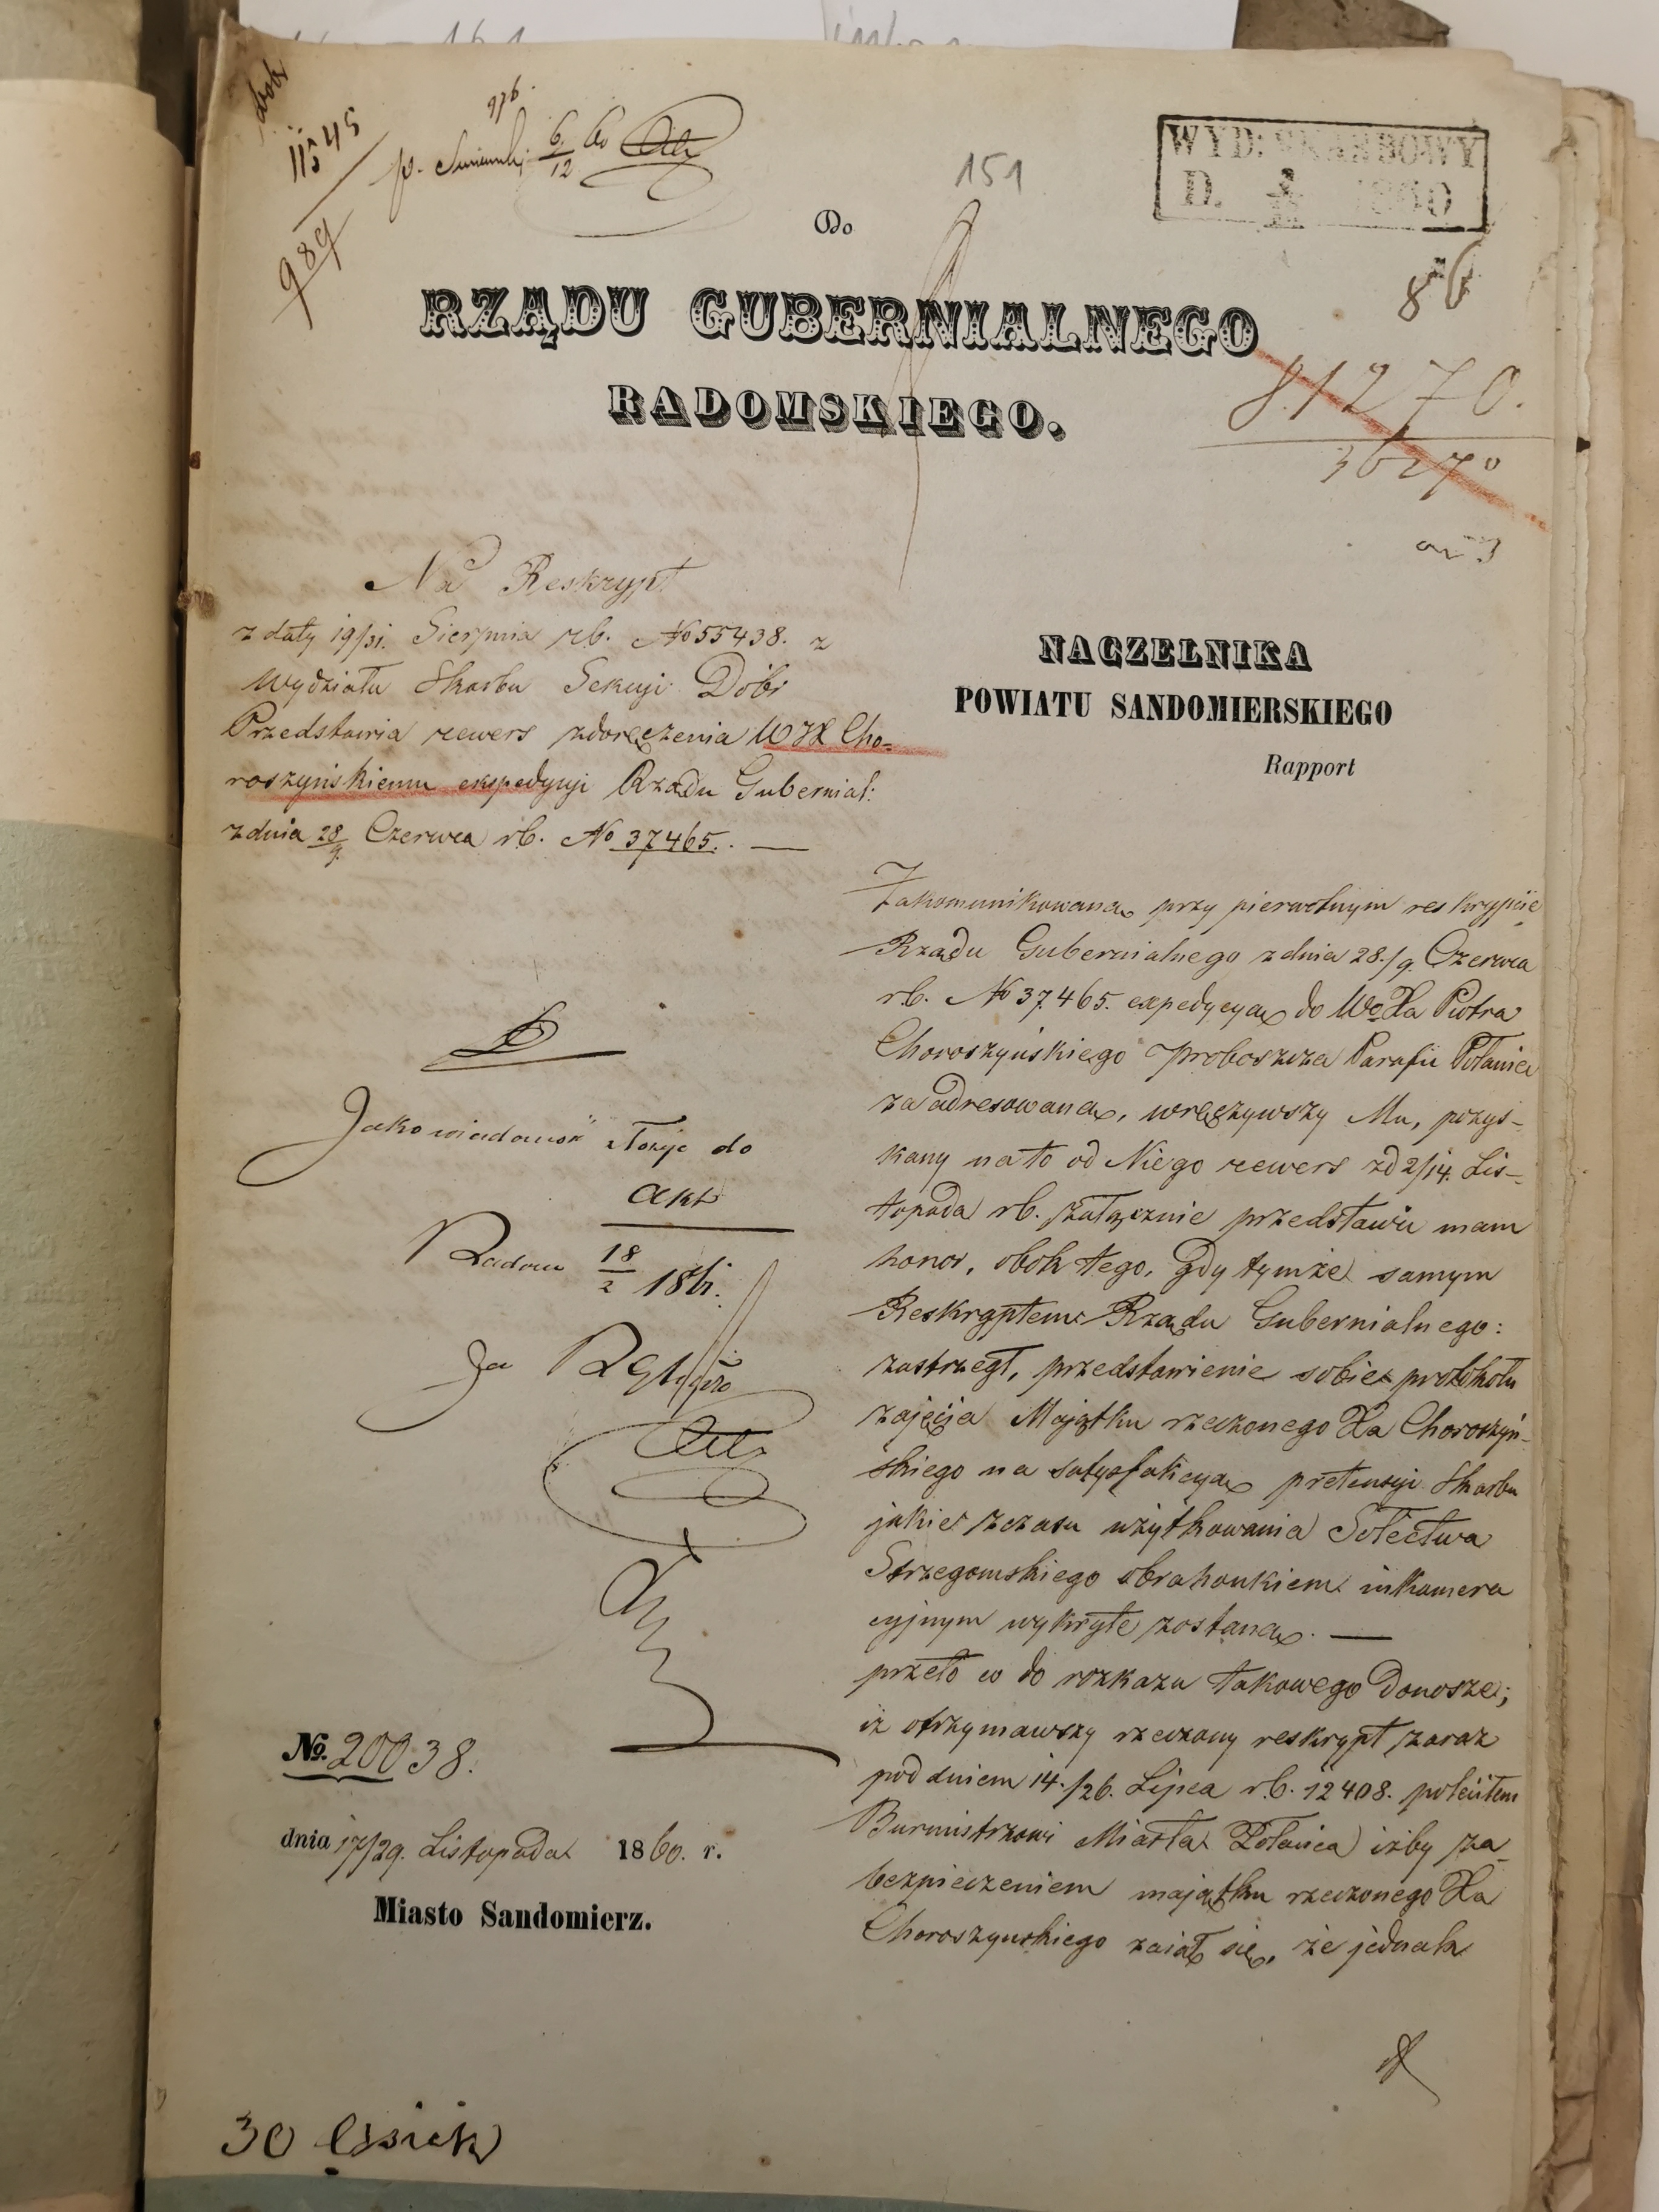 11545
989
996.
p. 6/12 60
151
WYD: SKARBOWY
D. 1860
Do
RZĄDU GUBERNIALNEGO
RADOMSKIEGO.
86
81270.
36270
Na Reskrypt
z daty 19/31. Sierpnia rb. No 55438. z
Wydziału Skarbu Sekcyi Dóbr
Przedstawia rewers zdoręczenia WJX Cho-
roszyńskiemu ekspedycyi Rządu Gubernial:
z dnia 28/9. Czerwca rb. No 37465. —
NACZELNIKA
POWIATU SANDOMIERSKIEGO
Rapport
Zakomunikowaną przy pierwotnym reskrypcie
Rządu Gubernialnego z dnia 28./9. Czerwca
r.b. No 37.465. expedycyą do WoXa Piotra
Choroszyńskiego Proboszcza Parafii Połaniec
zaadresowaną, wręczywszy Mu, pozys-
kany na to od Niego rewers z d 2/14. Lis-
topada rb. załącznie przedstawić mam
honor, obok tego, Gdy tymże samym
Reskryptem Rządu Gubernialnego:
zastrzegł, przedstawienie sobie protokołu
zajęcia Majątku rzeczonego Xa Choroszyń-
skiego na satysfakcyą pretensyi Skarbu
jakie z czasu użytkowania Sołectwa
Strzegomskiego obrahunkiem inkamera
cyjnym wykryte zostaną. —
przeto w do rozkazu takowego Donoszę;
iż otrzymawszy rzeczony reskrypt zaraz
pod dniem 14./26. Lipca r.b. 12408. poleciłem
Burmistrzowi Miasta Połańca iżby za-
bezpieczeniem majątku rzeczonego Xa
Choroszynskiego zajął się, że jednak
Jako wiadomość złożyć do
akt
Radom 18/2 1861.
Za
No. 20038.
dnia 17/29. Listopada 1860. r.
Miasto Sandomierz.
30